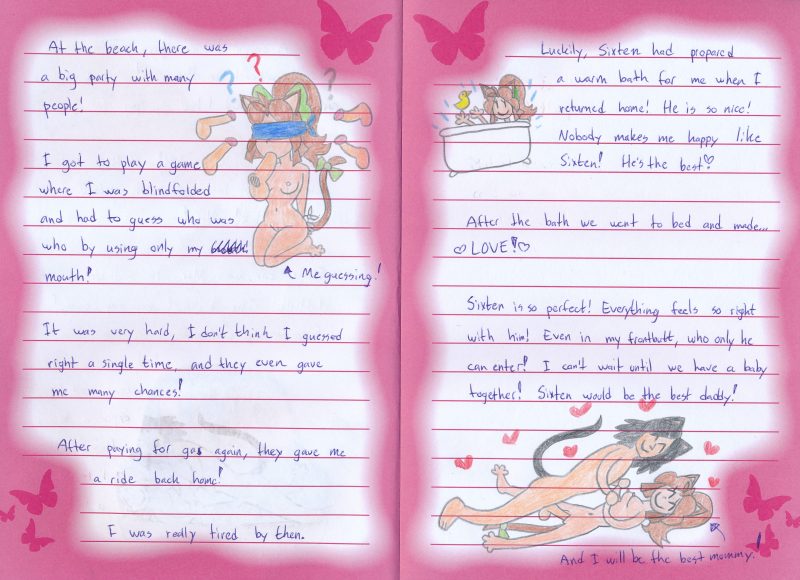 At the beach, there was
a big party with many
people!
? ? ?
I got to play a game
where I was blindfolded
and had to guess who was
who by using only my
mouth!
Me guessing!
It was very hard, I don't think I guessed
right a single time, and they even gave
me many chances!
After paying for gas again, they gave me
a ride back home!
I was really tired by then.
Luckily, Sixten had prepared
a warm bath for me when I
returned home! He is so nice!
Nobody makes me happy like
Sixten! He's the best♡
After the bath we went to bed and made...
♡ LOVE!♡
Sixten is so perfect! Everything feels so right
with him! Even in my frontbutt, who only he
can enter! I can't wait until we have a baby
together! Sixten would be the best daddy!
And I will be the best mommy!